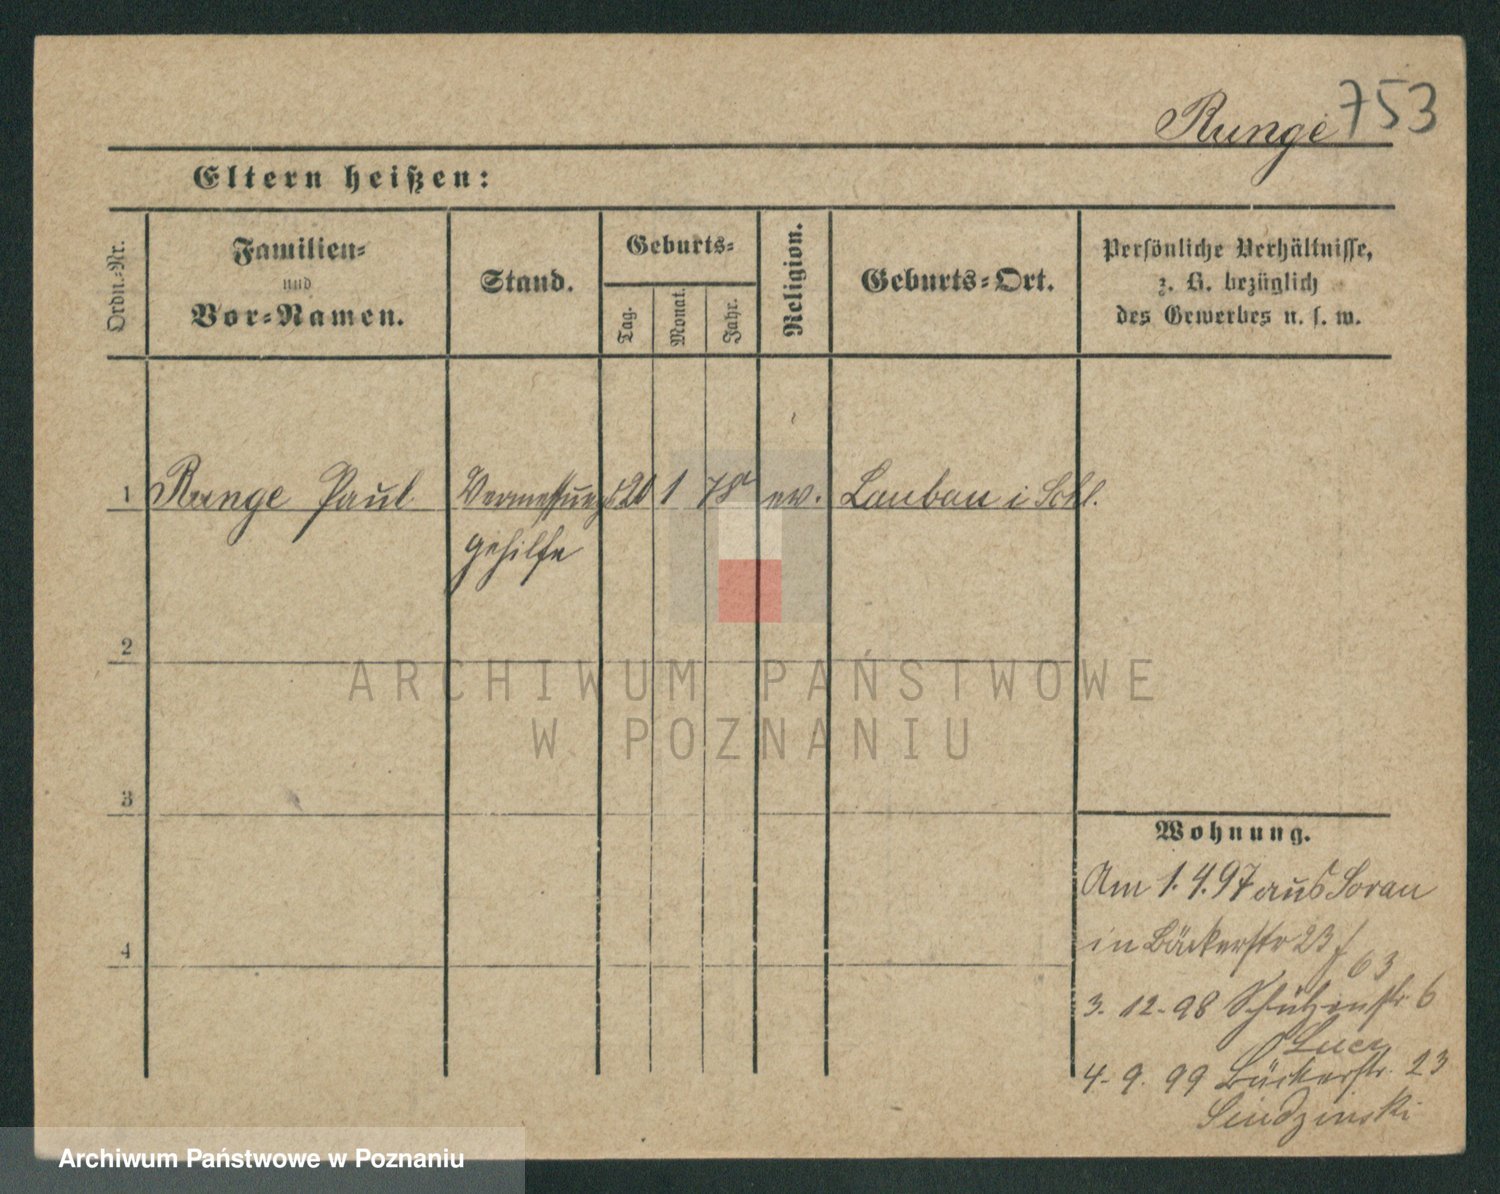 Runge 753
Eltern heißen:
Ordn.-Nr.
Familien-
und
Vor-Namen.
Stand.
Geburts-
Tag.
Monat.
Jahr.
Religion.
Geburts-Ort.
Persönliche Verhältnisse,
z. B. bezüglich
des Gewerbes u. s. w.
1 Runge Paul Vermessungs 20 1 78 ev. Lauban i Schl.
gehilfe
2
3
4
Wohnung.
Am 1.4.97 aus Sorau
in Bäckerstr 23 f
63
3. 12. 98 Schützenstr. 6
4. 9. 99 Bäckerstr. 23
ARCHIWUM PAŃSTWOWE
W POZNANIU
Archiwum Państwowe w Poznaniu